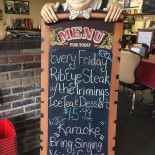 MENU
FOR TODAY
Every Friday
RibEye Steak
w/the Trimings
Ice Tea & Dessert
$15.99
Karaoke
Bring Singing